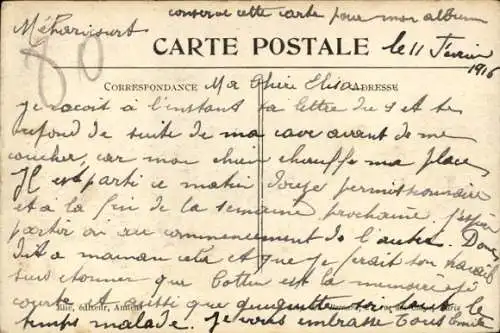 conserve cette carte pour mon album
Méharicourt
CARTE POSTALE
le 11 Février
1916
80
CORRESPONDANCE
Ma Chère Elisa
ADRESSE
je reçoit à l'instant ta lettre du 9 et te
répond de suite de ma cave avant de me
coucher, car mon chien chauffe ma place
Il est parti ce matin douze permissionnaire
et a la fin de la semaine prochaine j'espère
partir ou au commencement de l'autre. Donc
dit a maman cela et que je ferait son travail
suis étonner que est la mémoire si
courte. et aussi que soit tout le
éditeur, Amiens
temps malade. Je vous embrasse tous